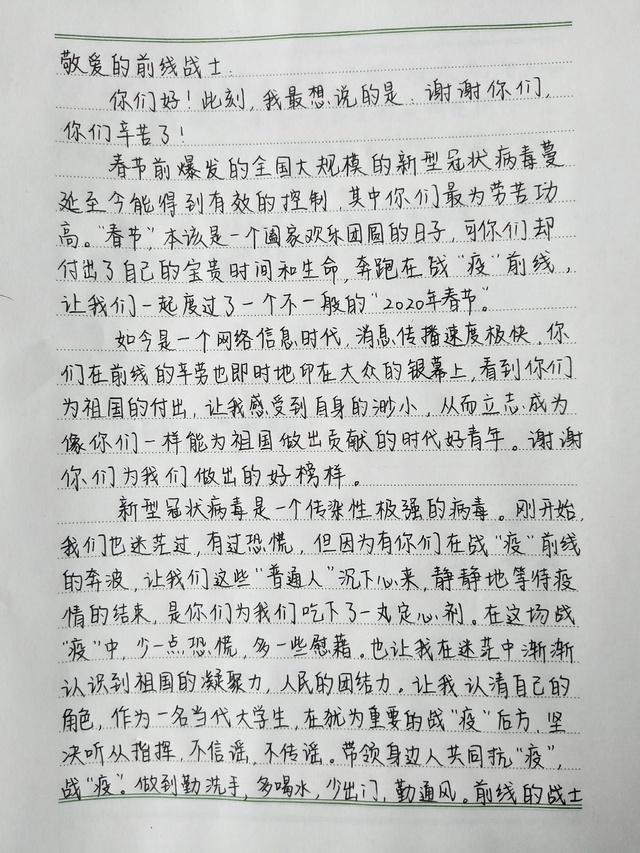 敬爱的前线战士:
你们好!此刻,我最想说的是:谢谢你们,
你们辛苦了!
春节前爆发的全国大规模的新型冠状病毒蔓
延至今能得到有效的控制,其中你们最为劳苦功
高。“春节”,本该是一个阖家欢乐团圆的日子,可你们却
付出了自己的宝贵时间和生命,奔跑在战“疫”前线,
让我们一起度过了一个不一般的“2020年春节”。
如今是一个网络信息时代,消息传播速度极快,你
们在前线的辛劳也即时地印在大众的银幕上,看到你们
为祖国的付出,让我感受到自身的渺小,从而立志成为
像你们一样能为祖国做出贡献的时代好青年。谢谢
你们为我们做出的好榜样。
新型冠状病毒是一个传染性极强的病毒。刚开始,
我们也迷茫过,有过恐慌,但因为有你们在战“疫”前线
的奔波,让我们这些“普通人”沉下心来,静静地等待疫
情的结束,是你们为我们吃下了一丸定心剂。在这场战
“疫”中,少一点恐慌,多一些慰藉。也让我在迷茫中渐渐
认识到祖国的凝聚力,人民的团结力。让我认清自己的
角色,作为一名当代大学生,在犹为重要的战“疫”后方,坚
决听从指挥,不信谣,不传谣。带领身边人共同抗“疫”,
战“疫”。做到勤洗手,多喝水,少出门,勤通风。前线的战士